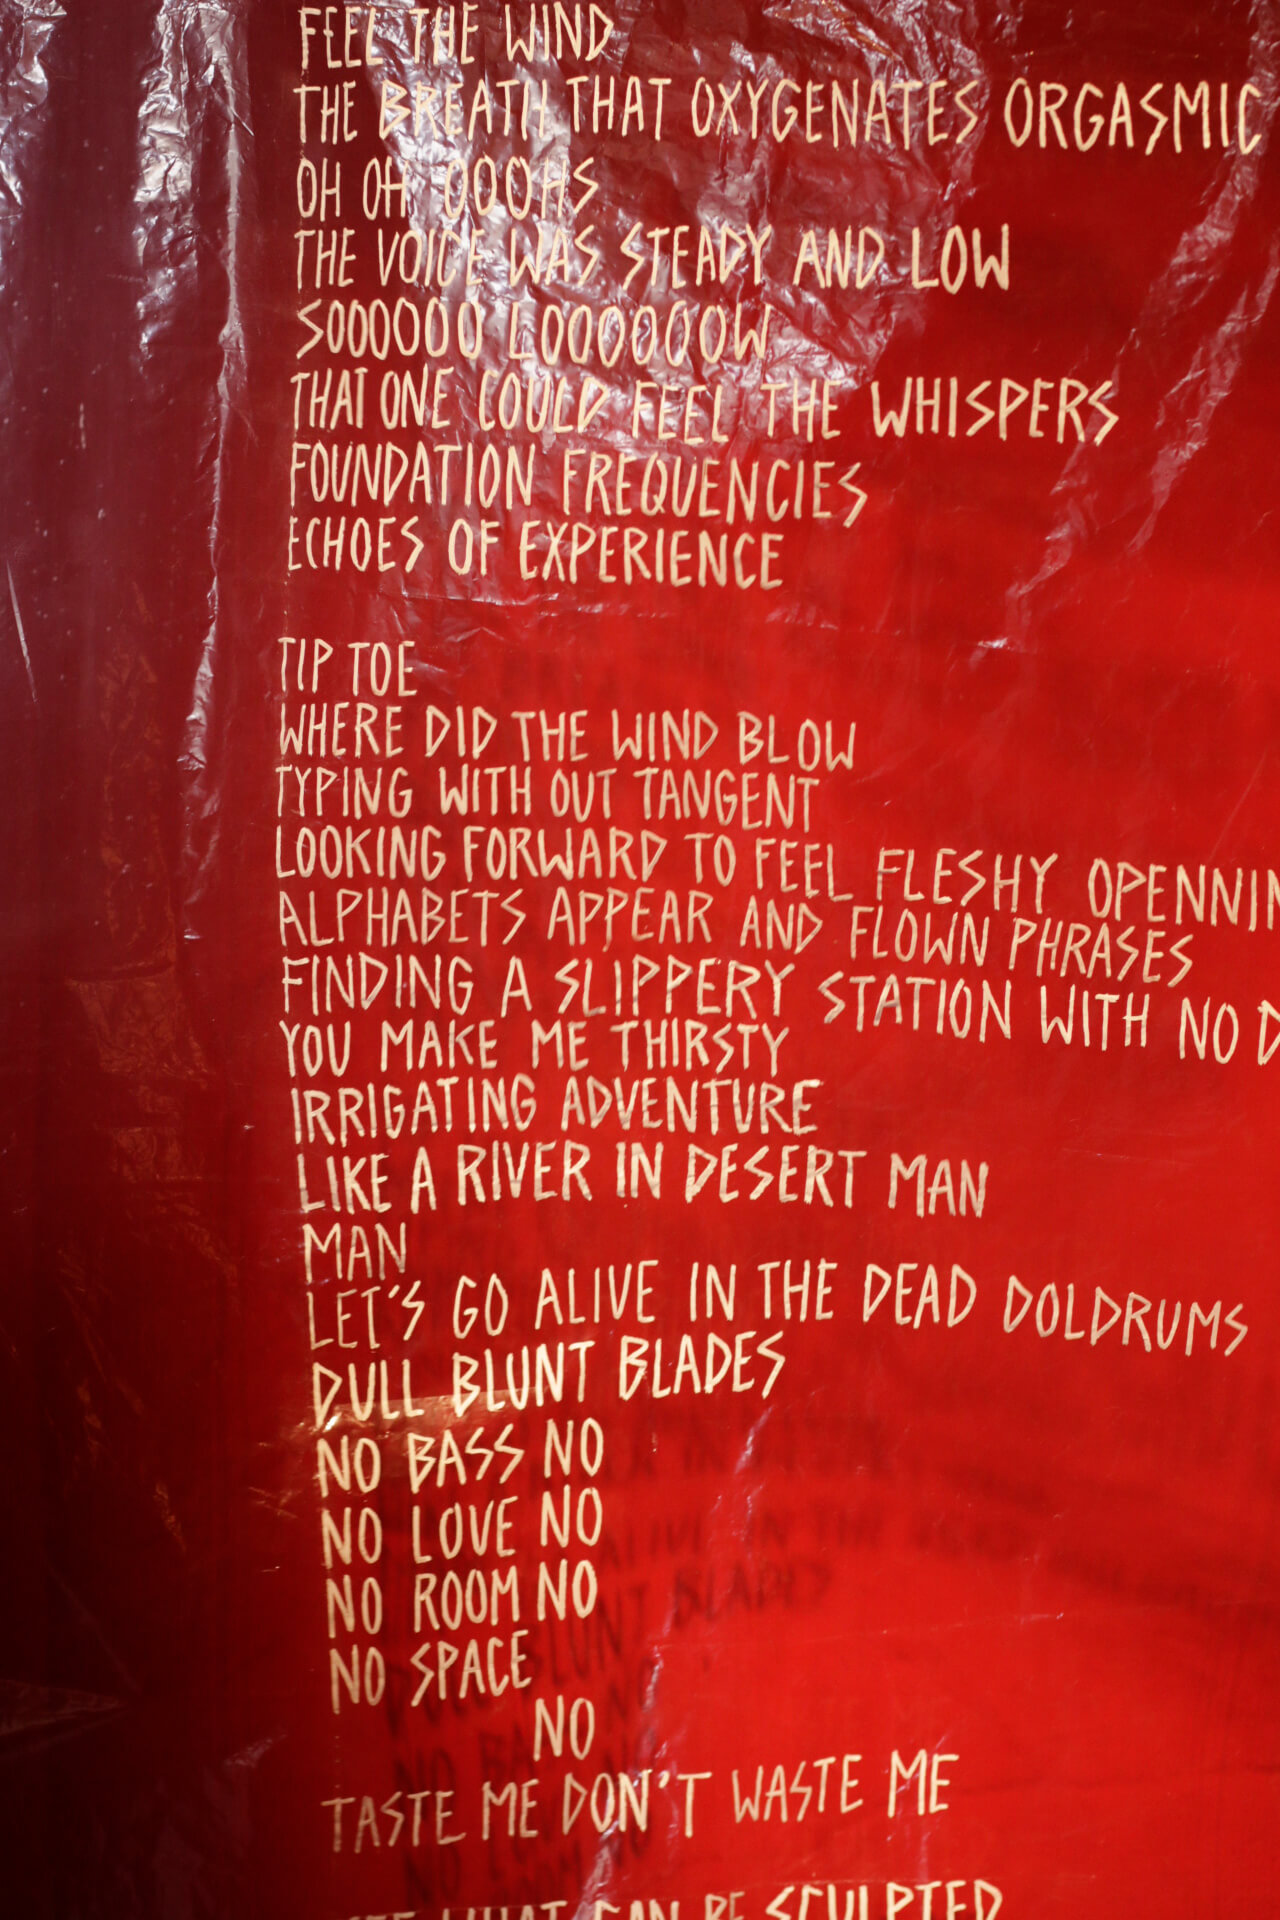 FEEL THE WIND
THE BREATH THAT OXYGENATES ORGASMIC
OH OH OOOHS
THE VOICE WAS STEADY AND LOW
SOOOOOO LOOOOOOOW
THAT ONE COULD FEEL THE WHISPERS
FOUNDATION FREQUENCIES
ECHOES OF EXPERIENCE
TIP TOE
WHERE DID THE WIND BLOW
TYPING WITH OUT TANGENT
LOOKING FORWARD TO FEEL FLESHY OPENNIN
ALPHABETS APPEAR AND FLOWN PHRASES
FINDING A SLIPPERY STATION WITH NO D
YOU MAKE ME THIRSTY
IRRIGATING ADVENTURE
LIKE A RIVER IN DESERT MAN
MAN
LET'S GO ALIVE IN THE DEAD DOLDRUMS
DULL BLUNT BLADES
NO BASS NO
NO LOVE NO
NO ROOM NO
NO SPACE
NO
TASTE ME DON'T WASTE ME
WHAT CAN BE SCULPTED